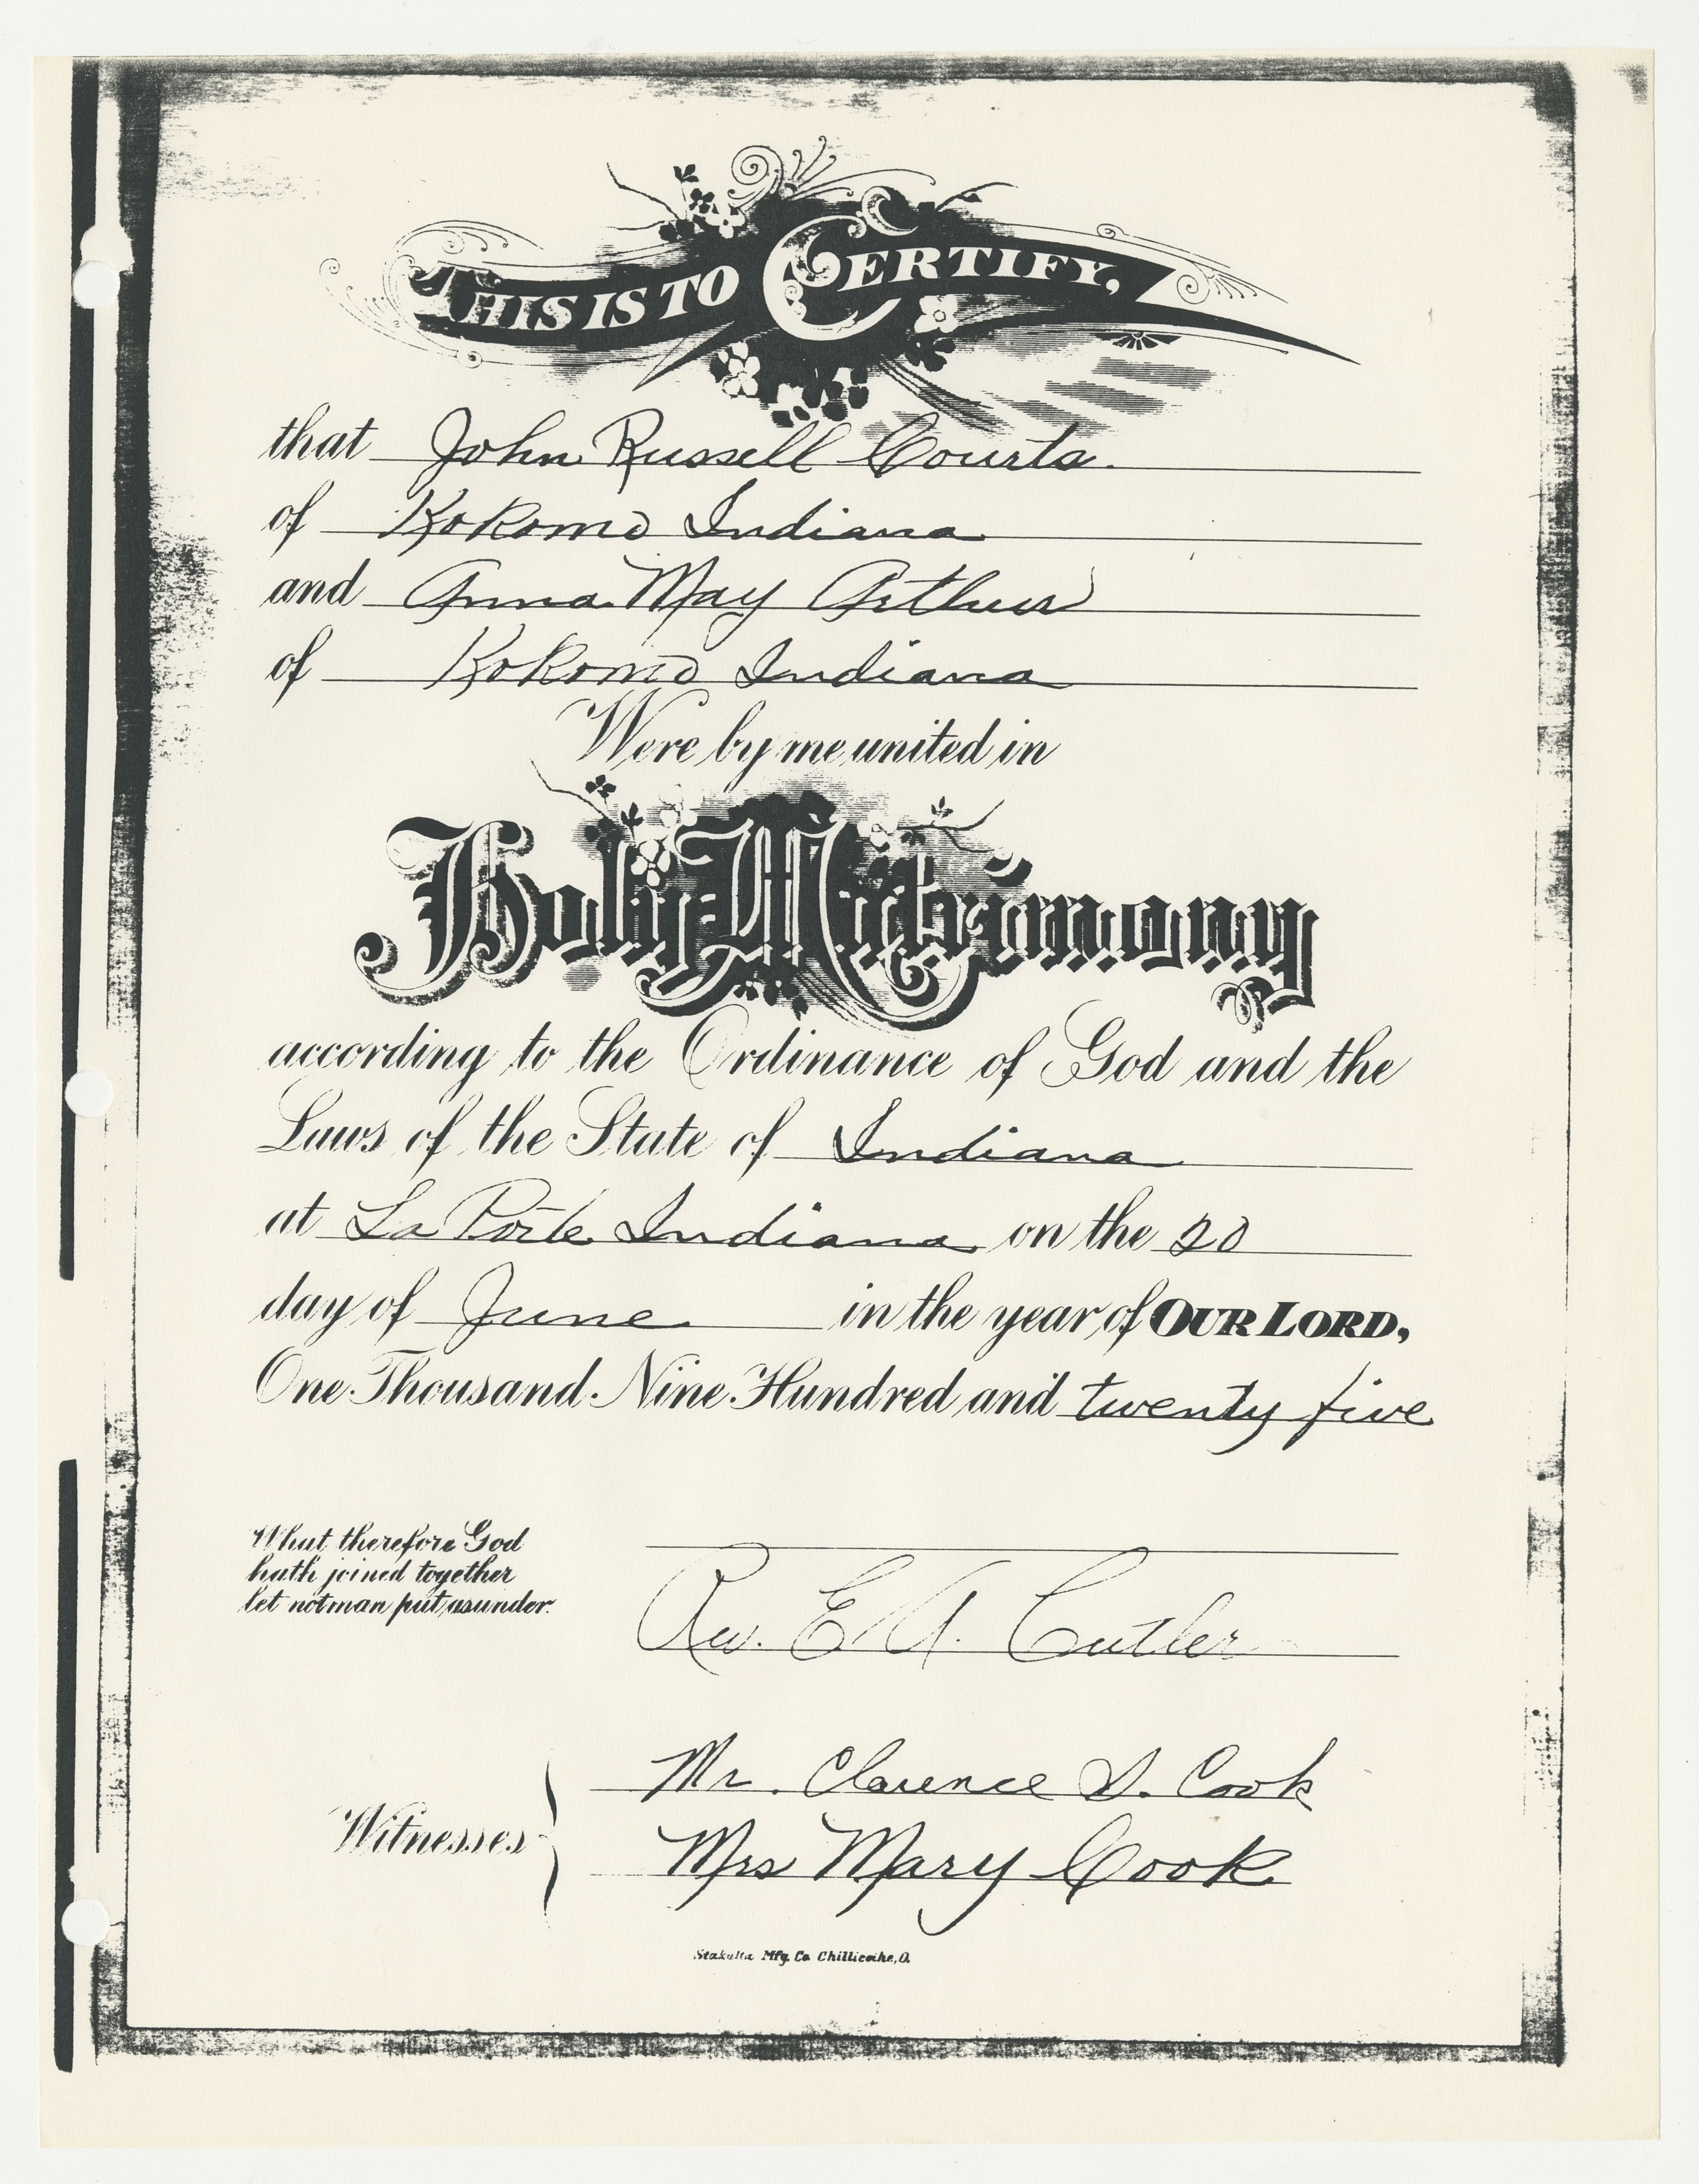 THIS IS TO CERTIFY,
that John Russell Courts.
of Kokomo Indiana
and Anna May Arthur
of Kokomo Indiana
Were by me united in
Holy Matrimony
according to the Ordinance of God and the
Laws of the State of Indiana
at La Porte Indiana on the 20
day of June in the year of OUR LORD,
One Thousand Nine Hundred and twenty five
What therefore God
hath joined together
let not man put asunder.
Rev. E. A. Cutler
Witnesses
Mr. Clarence D. Cook
Mrs Mary Cook
Mfg. Co. Chillicothe, O.